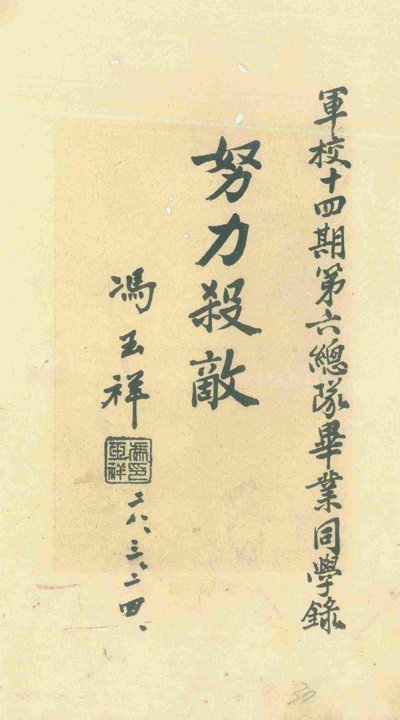 軍校十四期第六總隊畢業同學錄
努力殺敵
馮玉祥
馮玉祥印
二八、三、二四、
30